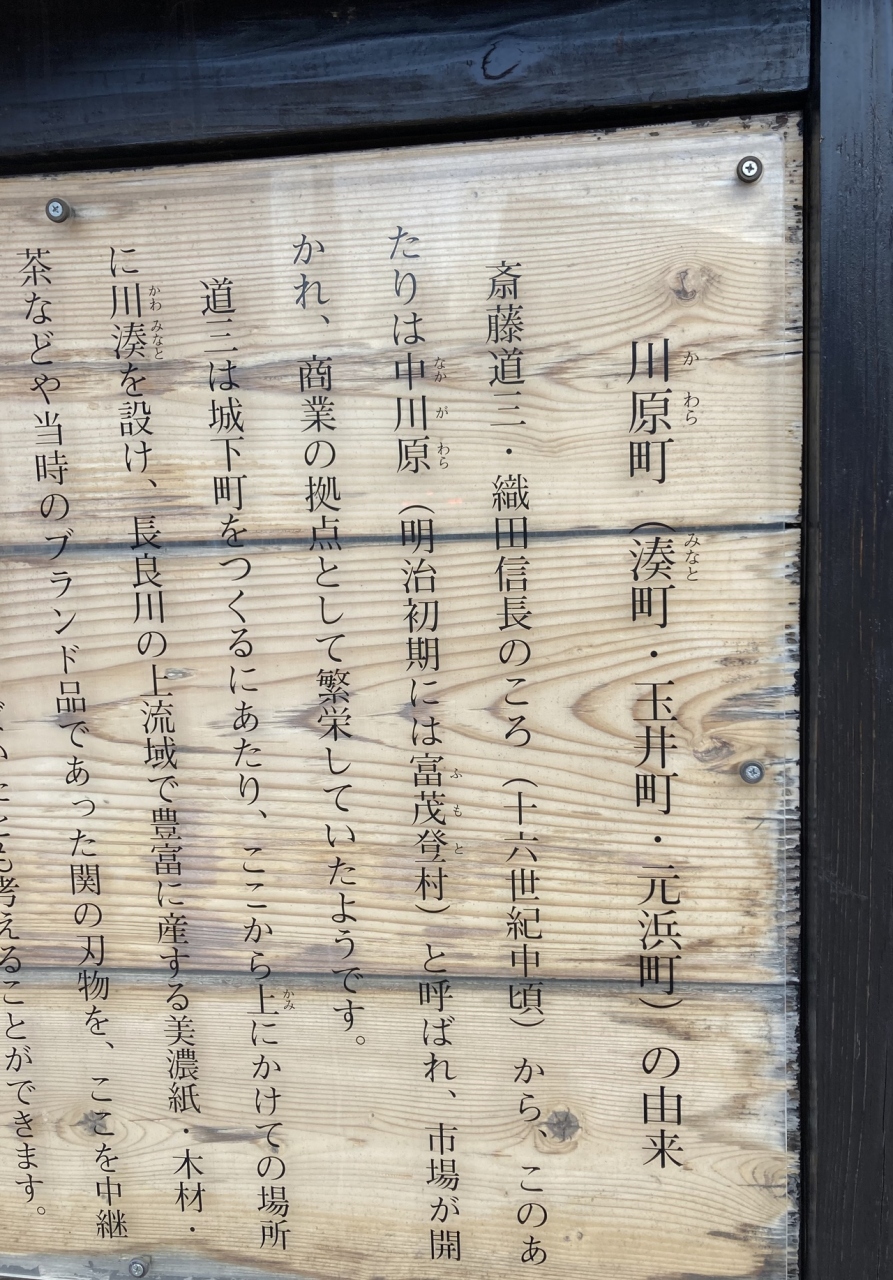 川原町（湊町・玉井町・元浜町）の由来
か わら
みなと
斎藤道三・織田信長のころ（十六世紀中頃）から、このあ
たりは中川原（明治初期には富茂登村）と呼ばれ、市場が開
なか が わら
ふ も と
かれ、商業の拠点として繁栄していたようです。
道三は城下町をつくるにあたり、ここから上にかけての場所
かみ
に川湊を設け、長良川の上流域で豊富に産する美濃紙・木材・
かわ みなと
茶などや当時のブランド品であった関の刃物を、ここを中継
考えることができます。